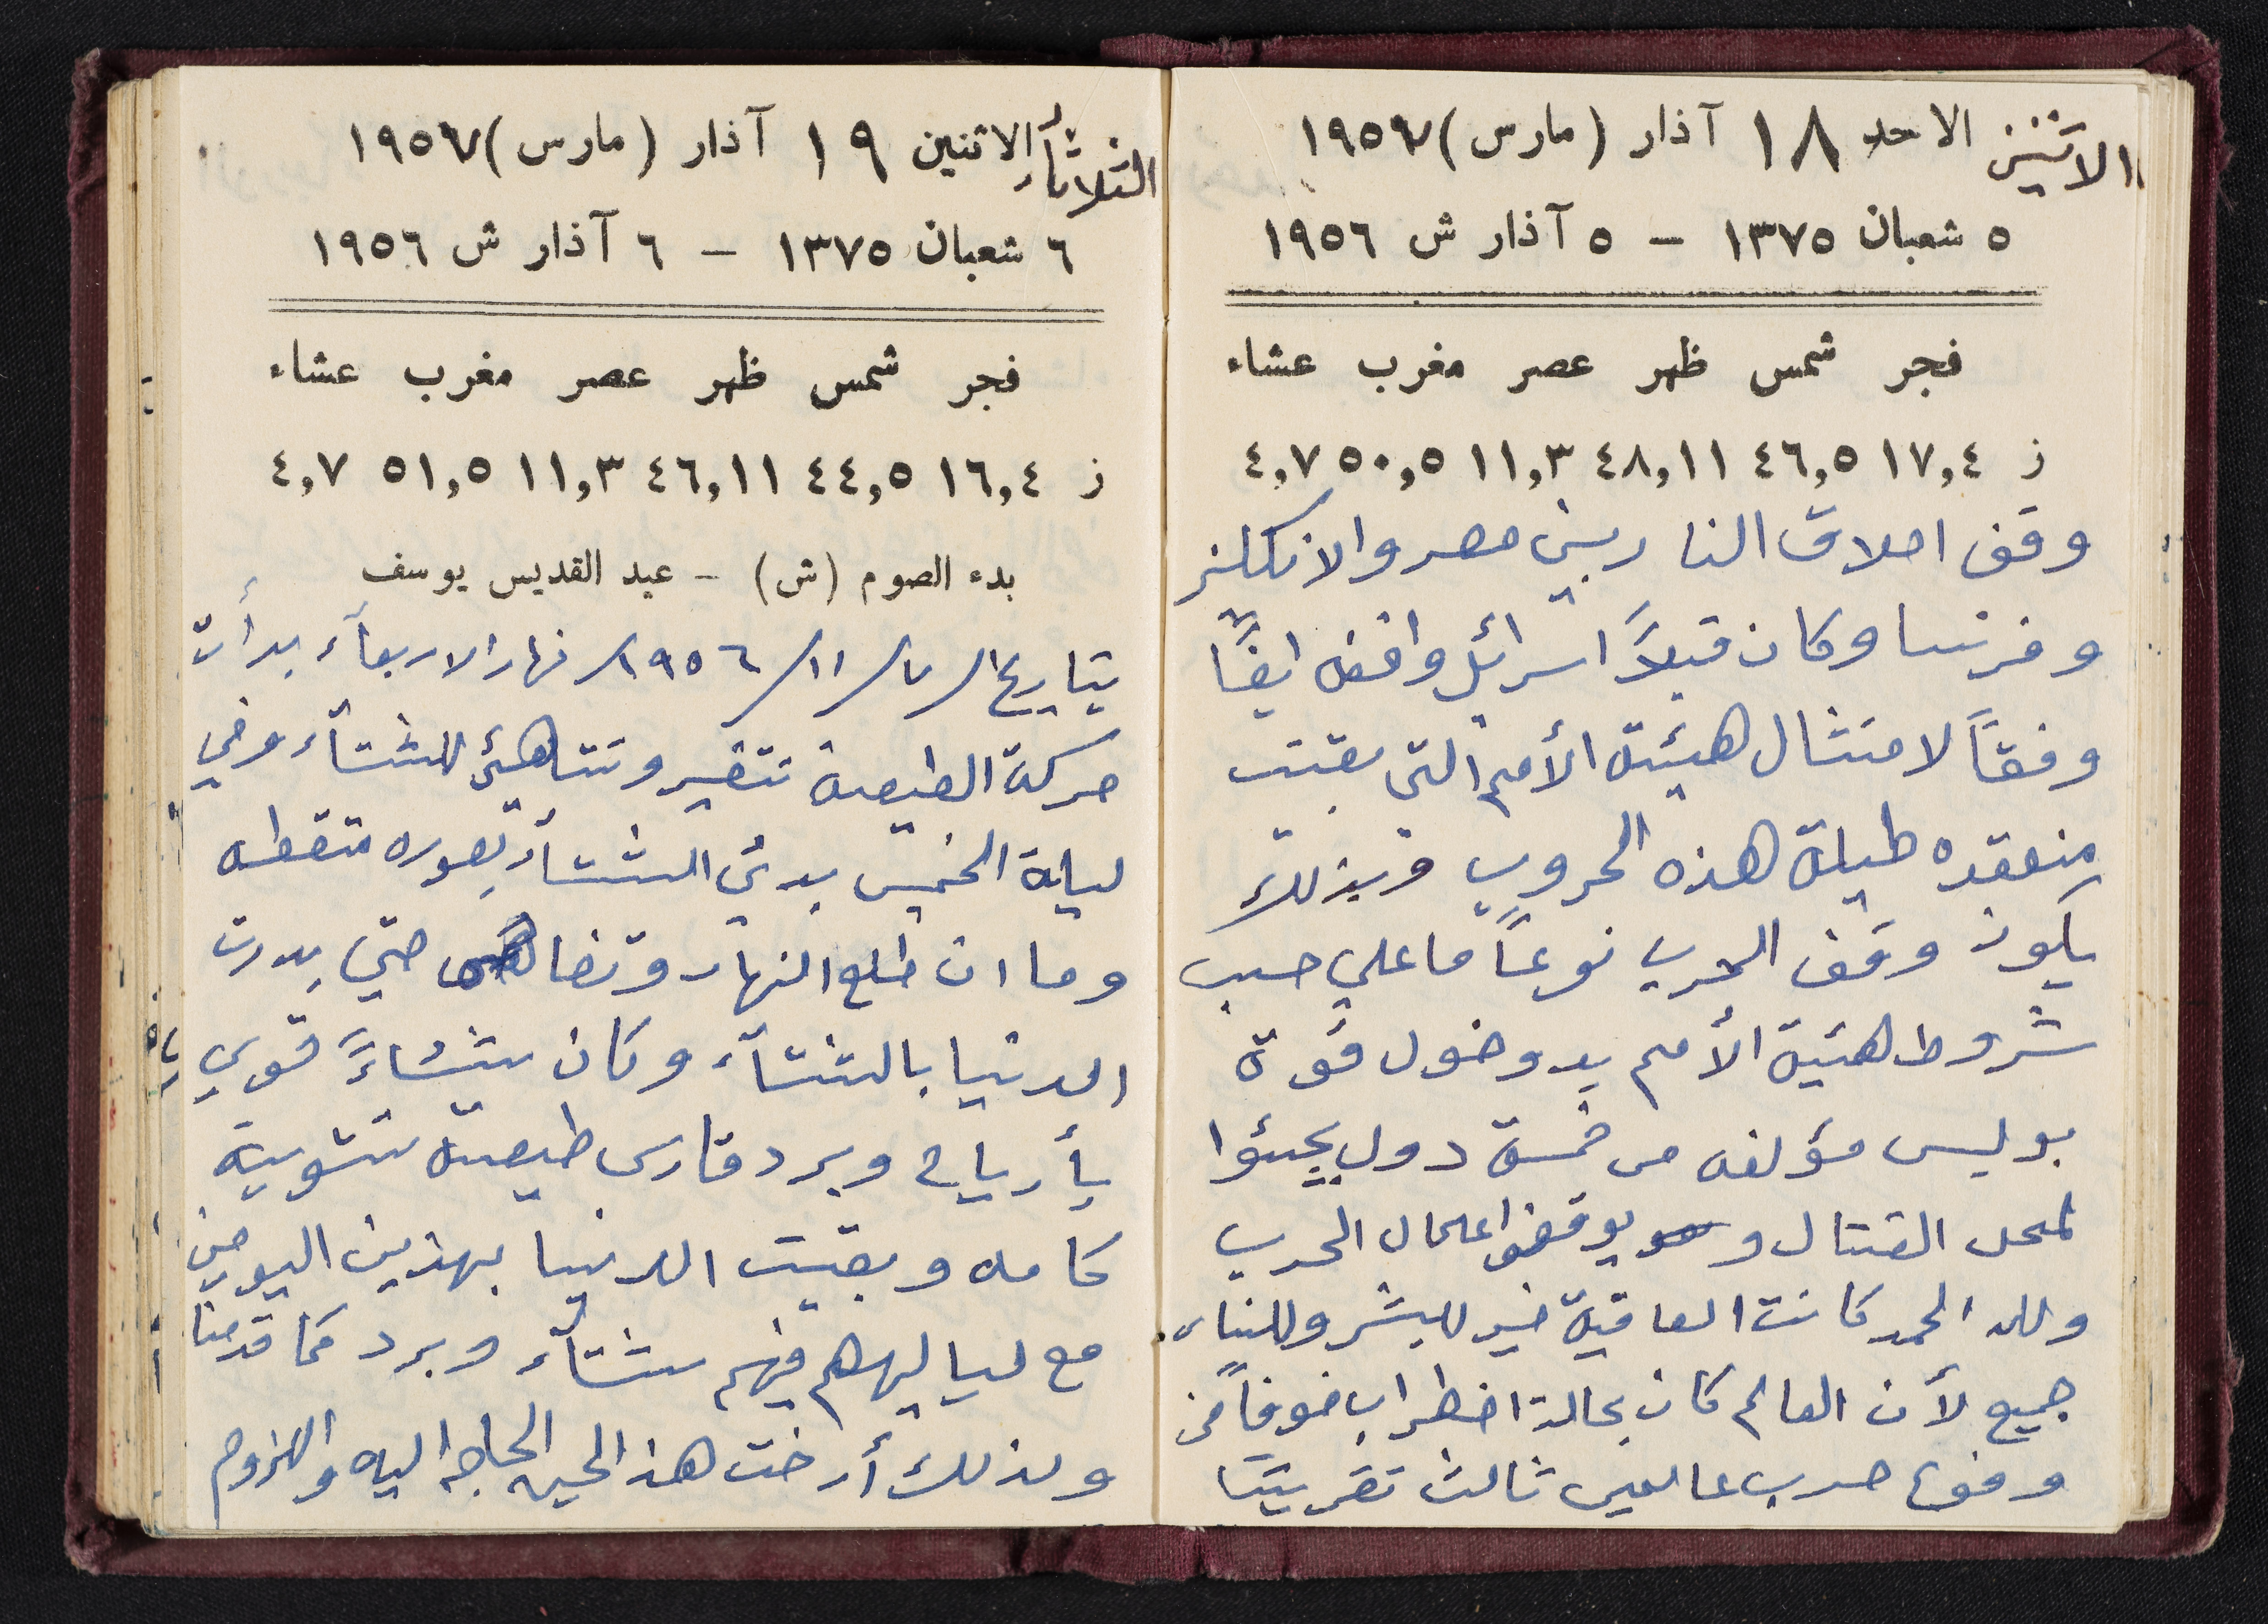 الاثنين الاحد ١٨ آذار (مارس) ١٩٥٧
٥ شعبان ١٣٧٥ – ٥ آذار ش ١٩٥٦
فجر شمس ظهر عصر مغرب عشاء
ز ١٧,٤ ٤٦,٥ ٤٨,١١ ١١,٣ ٥٠,٥ ٤,٧
وقف اطلاق النار بين مصر والانكلنر
وفرنسا وكان قبلاً اسرائيل واقف ايضاً
وفقاً لامتثال هيئة الأمم التي بقيت
منعقده طيلة هذه الحروب وبذلك
يكون وقف الحرب نوعاً ما علي حسب
شروط هيئة الأمم بدوخول قوة
بوليس مؤلفه من خمسة دول يجيئوا
لمحل القتال و يوقفوا اعمال الحرب
ولله الحمد كانت العاقبة خير للبشر وللناس
جميع لأن العالم كان بحالة اضطراب خوفاً من
وقوع حرب عالمين ثالث تقريبا
الثلاثاء الاثنين ١٩ آذار (مارس) ١٩٥٧
٦ شعبان ١٣٧٥ – ٦ آذار ش ١٩٥٦
فجر شمس ظهر عصر مغرب عشاء
ز ١٦,٤ ٤٤,٥ ٤٦,١١ ١١,٣ ٥١,٥ ٤,٧
بدء الصوم (ش) – عيد القديس يوسف
بتاريخ ٧/١١/١٩٥٦ نهار الاربعآء بدأت
حركة الطبيعة تتغير وتتاهئ للشتآء وفي
ليلة الخميس بدئ الشتآء بصوره متقطعه
وما ان طلع النهار وتضاحى حتي بدرت
الدنيا بالشتآء وكان شتاءً قوي
بأرياح وبرد قارس طبيعة شتوية
كامله وبقيت الدنيا بهذين اليومين
مع لياليهم فيهم شتآء وبرد كما قدمنا
ولذلك أرخت هذا الحين الحاجه اليه واللزوم